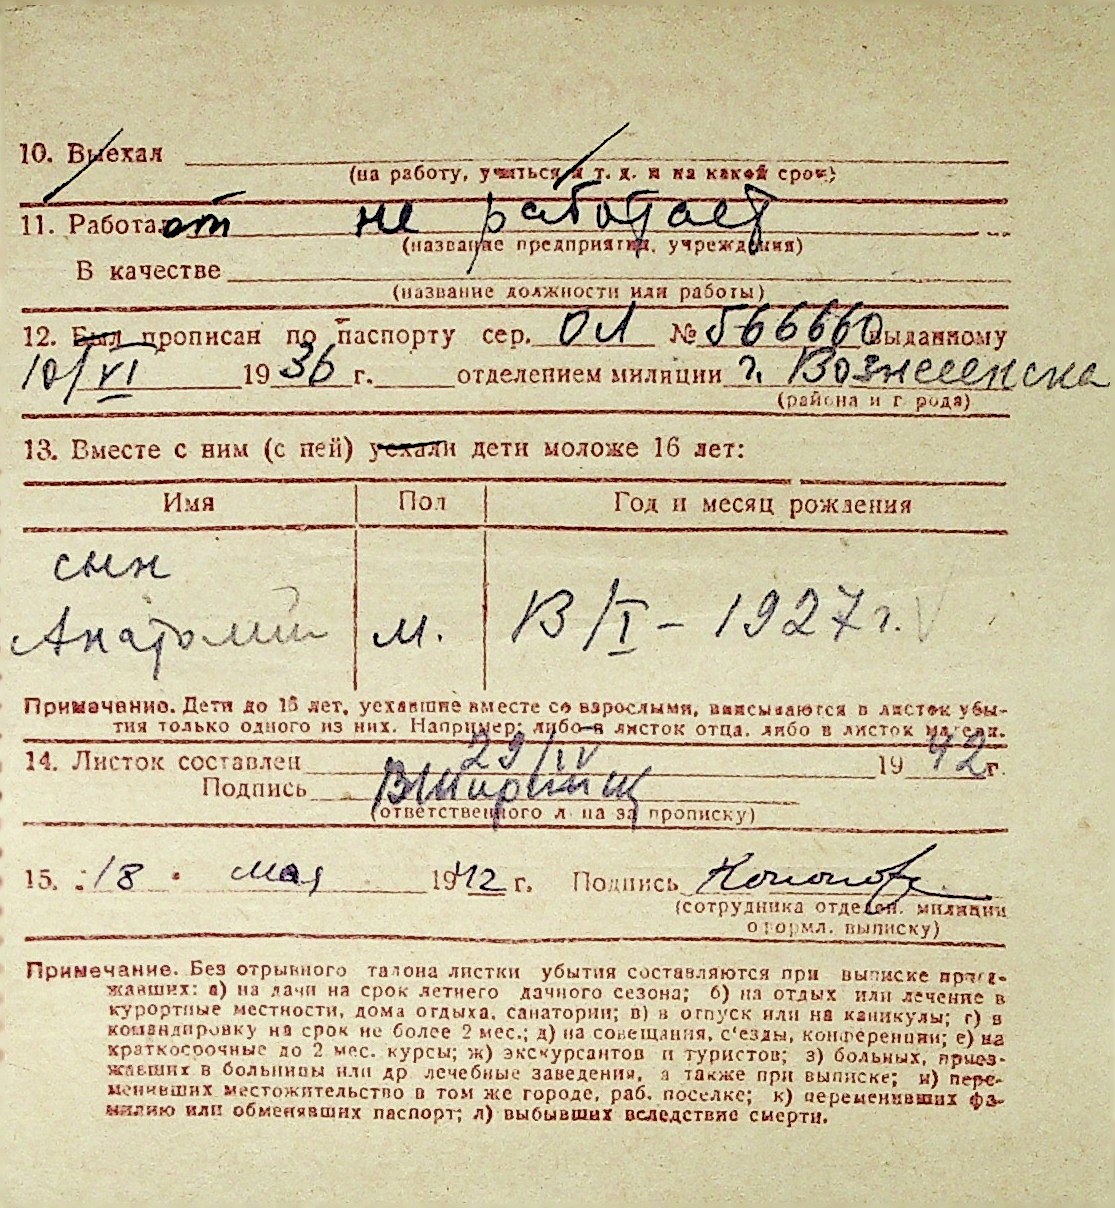 10. Выехал
(на работу, учиться и т. д. и на какой срок)
11. Работает не работает
(название предприятия, учреждения)
В качестве
(название должности или работы)
12. Был прописан по паспорту сер. ОЛ № 566660 выданному
10/VI 1936 г. отделением милиции г. Вознесенска
(района и города)
13. Вместе с ним (с ней) уехали дети моложе 16 лет:
Имя Пол Год и месяц рождения
сын
Анатолий м. 13/I – 1927 г.
Примечание. Дети до 16 лет, уехавшие вместе со взрослыми, вписываются в листок убы-
тия только одного из них. Например: либо в листок отца, либо в листок матери.
14. Листок составлен 29/IV 1942 г.
Подпись
(ответственного лица за прописку)
15. "18" мая 1942 г. Подпись Кононов
(сотрудника отделен. милиции
оформл. выписку)
Примечание. Без отрывного талона листки убытия составляются при выписке приез-
жавших: а) на дачи на срок летнего дачного сезона; б) на отдых или лечение в
курортные местности, дома отдыха, санатории; в) в отпуск или на каникулы; г) в
командировку на срок не более 2 мес.; д) на совещания, с'езды, конференции; е) на
краткосрочные до 2 мес. курсы; ж) экскурсантов и туристов; з) больных, приез-
жавших в больницы или др лечебные заведения, а также при выписке; и) пере-
менивших местожительство в том же городе, раб. поселке; к) переменивших фа-
милию или обменявших паспорт; л) выбывших вследствие смерти.